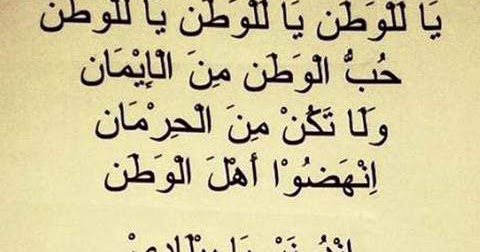 يَا لَلْوَطَنْ يَا لَلْوَطَن يَا لَلْوَطَنْ
حُبُّ الْوَطَن مِنَ الْإِيْمَان
وَلَا تَكُنْ مِنَ الْحِرْمَان
اِنْهَضُوْا أَهْلَ الْوَطَن